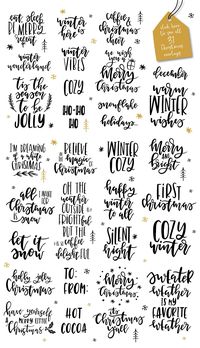 eat sleep
be merry
repeat
winter
is
here
coffee &
Christmas
cheer
click here
to see all
Christmas
winter
wonderland
winter
VIBES
we wish you
a
Merry
Christmas
december
'tis the
season
to be
JOLLY
COZY
snowflake
warm
WINTER
wishes
HO-HO
HO
holidays
I'M DREAMING
of a white
CHRISTMAS
BELIEVE
in the
magic of
CHRISTMAS
WINTER
COZY
Merry
and
Bright
all I
want for
Christmas
is
snow
OH THE
WEATHER
OUTSIDE IS
FRIGHTFUL
BUT the
COFFEE IS
delightful
happy
winter
to all
FIRST
CHRISTMAS
let it
snow
SILENT
night
COZY
winter
holly jolly
Christmas
TO:
FROM:
Merry
Christmas
SWEATER
WEATHER
IS MY
FAVORITE
WEATHER
have yourself
a
merry little
Christmas
HOT
COCOA
it's
Christmas
y'all